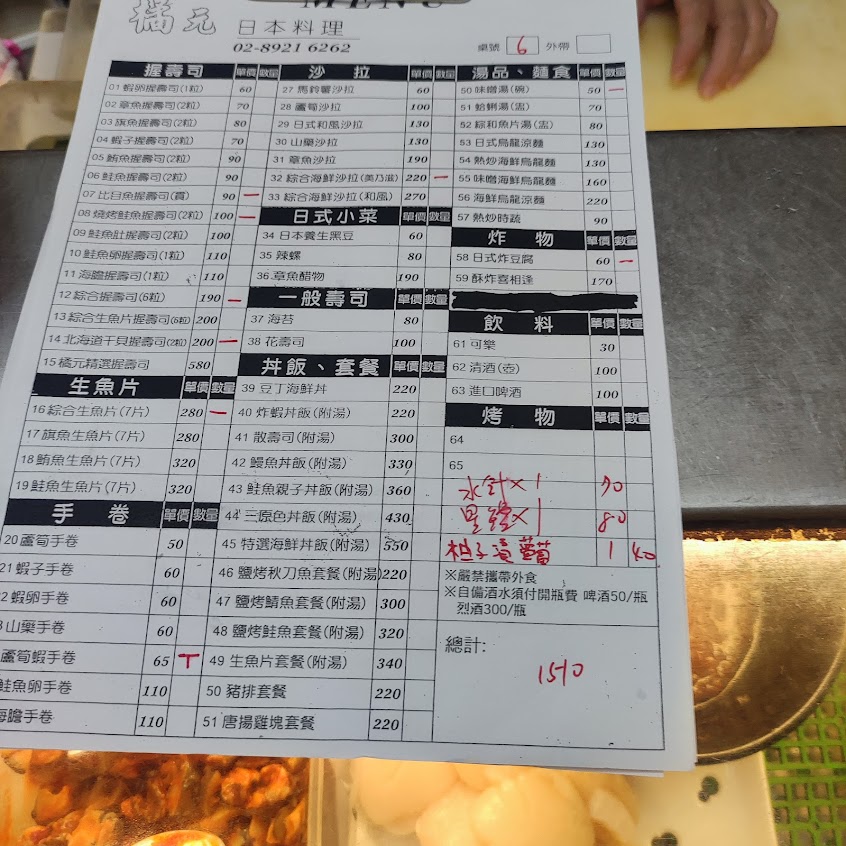 MENU
橘元 日本料理
02-8921 6262
桌號 6 外帶
握壽司 單價 數量
01 蝦卵握壽司(1粒) 60
02 章魚握壽司(2粒) 70
03 旗魚握壽司(2粒) 80
04 蝦子握壽司(2粒) 70
05 鮪魚握壽司(2粒) 90
06 鮭魚握壽司(2粒) 90
07 比目魚握壽司(貫) 90 一
08 燒烤鮭魚握壽司(2粒) 100 一
09 鮭魚肚握壽司(2粒) 100
10 鮭魚卵握壽司(1粒) 110
11 海膽握壽司(1粒) 110
12 綜合握壽司(6粒) 190 一
13 綜合生魚片握壽司(6粒) 200
14 北海道干貝握壽司(2粒) 200 一
15 橘元精選握壽司 580
生魚片 單價 數量
16 綜合生魚片(7片) 280 一
17 旗魚生魚片(7片) 280
18 鮪魚生魚片(7片) 320
19 鮭魚生魚片(7片) 320
手卷 單價 數量
20 蘆筍手卷 50
21 蝦子手卷 60
2 蝦卵手卷 60
山藥手卷 60
蘆筍蝦手卷 65 T
鮭魚卵手卷 110
海膽手卷 110
沙拉 單價 數量
27 馬鈴薯沙拉 60
28 蘆筍沙拉 100
29 日式和風沙拉 130
30 山藥沙拉 130
31 章魚沙拉 190
32 綜合海鮮沙拉(美乃滋) 220 一
33 綜合海鮮沙拉(和風) 270
日式小菜 單價 數量
34 日本養生黑豆 60
35 辣螺 80
36 章魚醋物 190
一般壽司 單價 數量
37 海苔 80
38 花壽司 100
丼飯、套餐 單價 數量
39 豆丁海鮮丼 220
40 炸蝦丼飯(附湯) 220
41 散壽司(附湯) 300
42 鰻魚丼飯(附湯) 330
43 鮭魚親子丼飯(附湯) 360
44 三原色丼飯(附湯) 430
45 特選海鮮丼飯(附湯) 550
46 鹽烤秋刀魚套餐(附湯) 220
47 鹽烤鯖魚套餐(附湯) 300
48 鹽烤鮭魚套餐(附湯) 320
49 生魚片套餐(附湯) 340
50 豬排套餐 220
51 唐揚雞塊套餐 220
湯品、麵食 單價 數量
50 味噌湯(碗) 50 一
51 蛤蜊湯(盅) 70
52 綜和魚片湯(盅) 80
53 日式烏龍涼麵 130
54 熱炒海鮮烏龍麵 130
55 味噌海鮮烏龍麵 160
56 海鮮烏龍涼麵 220
57 熱炒時蔬 90
炸物 單價 數量
58 日式炸豆腐 60 一
59 酥炸喜相逢 170
飲料 單價 數量
61 可樂 30
62 清酒(壺) 100
63 進口啤酒 100
烤物 單價 數量
64
65
水針×1 70
×1 80
柚子漬蘿蔔 1 40
※嚴禁攜帶外食
※自備酒水須付開瓶費 啤酒50/瓶
烈酒300/瓶
總計:
1510